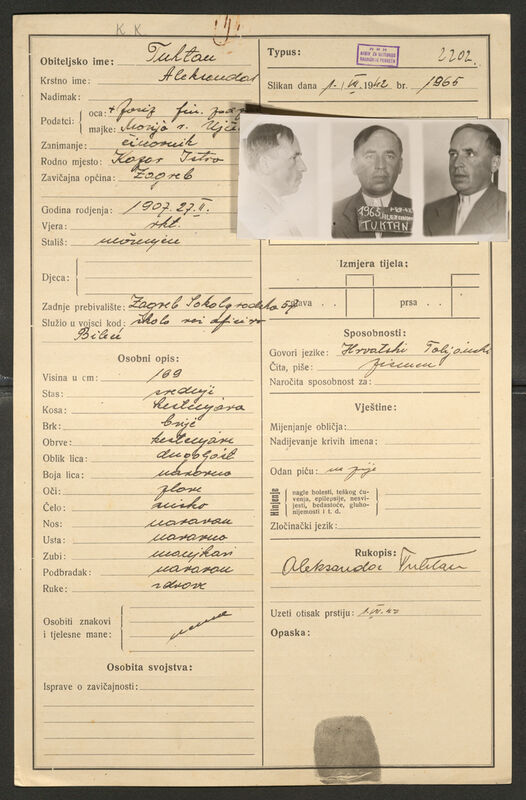 K K
Obiteljsko ime: Tuktan
Krstno ime: Aleksandar
Nadimak:
Podatci: oca: + Josip
majke: Marija r.
Zanimanje: činovnik
Rodno mjesto: Istra
Zavičajna općina: Zagreb
Godina rodjenja: 1907. 27. II.
Vjera: rkt.
Stališ:
Djeca:
Zadnje prebivalište: Zagreb
Služio u vojsci kod: škola
Bileći
Osobni opis:
Visina u cm: 169
Stas: srednji
Kosa: kestenjava
Brk: brije
Obrve: kestenjave
Oblik lica:
Boja lica: naravna
Oči: plave
Čelo: visoko
Nos: naravan
Usta: naravna
Zubi: manjkavi
Podbradak: naravan
Ruke: zdrave
Osobiti znakovi
i tjelesne mane: nema
Osobita svojstva:
Isprave o zavičajnosti:
Typus:
2202.
Slikan dana 1. VI. 1942 br. 1965
1965
TUKTAN
Izmjera tijela:
glava
prsa
Sposobnosti:
Govori jezike: Hrvatski Talijanski
Čita, piše: pismen
Naročita sposobnost za:
Vještine:
Mijenjanje obličja:
Nadijevanje krivih imena:
Odan piću: ne pije
Hinjenje
nagle bolesti, teškog ću-
venja, epilepsije, nesvi-
jesti, bedastoće, gluho-
nijemosti i t. d.
Zločinački jezik:
Rukopis:
Aleksandar Tuktan
Uzeti otisak prstiju:
Opaska: